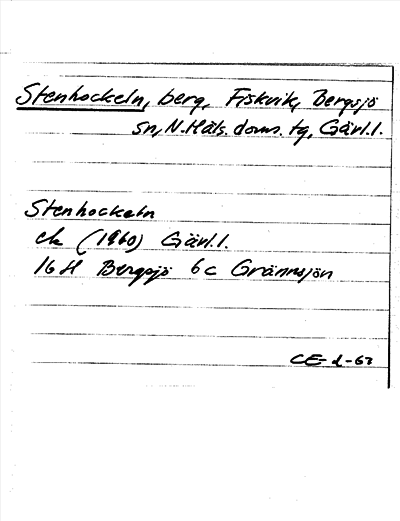 Stenhockeln, berg, Fiskvik, Bergsjö
sn, N. Häls. doms. tg, Gävl. l.
Stenhockeln
ek (1960) Gävl. l.
16 H Bergsjö 6 c Grännsjön